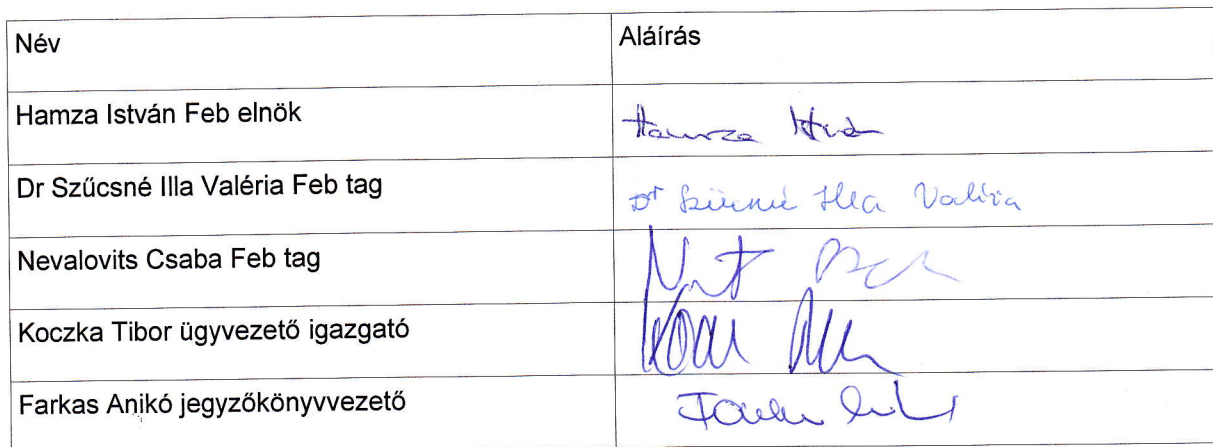 Név Aláírás
Hamza István Feb elnök Hamza István
Dr Szűcsné Illa Valéria Feb tag Dr Szűcsné Illa Valéria
Nevalovits Csaba Feb tag
Koczka Tibor ügyvezető igazgató
Farkas Anikó jegyzőkönyvvezető